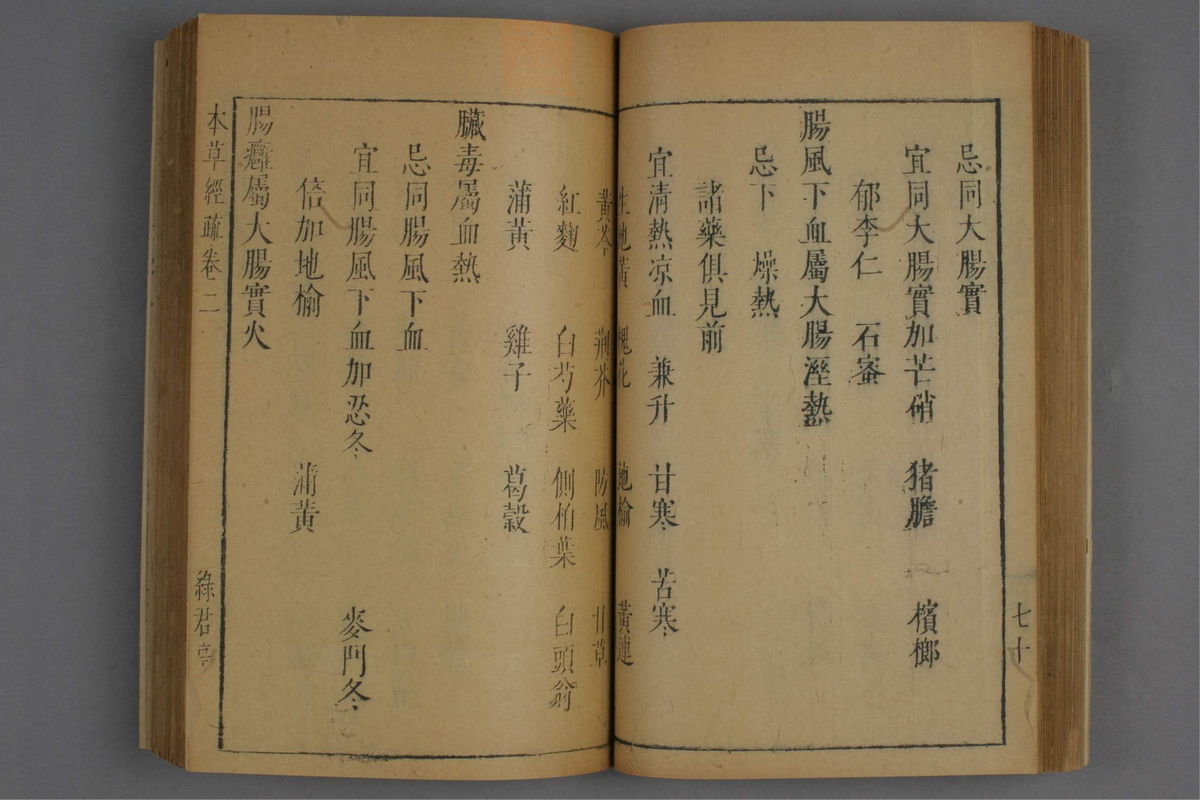 七十
忌同大腸實
宜同大腸實加芒硝　猪膽　檳榔
郁李仁　石蜜
腸風下血屬大腸溼熱
忌下　燥熱
諸藥俱見前
宜清熱凉血　兼升　甘寒　苦寒
生地黃　槐花　地榆　黃連
黃芩　荆芥　防風　甘草
紅麴　白芍藥　側柏葉　白頭翁
蒲黃　雞子　葛穀
臟毒屬血熱
忌同腸風下血
宜同腸風下血加忍冬　麥門冬
倍加地榆　蒲黃
腸癰屬大腸實火
本草經疏卷二　綠君亭